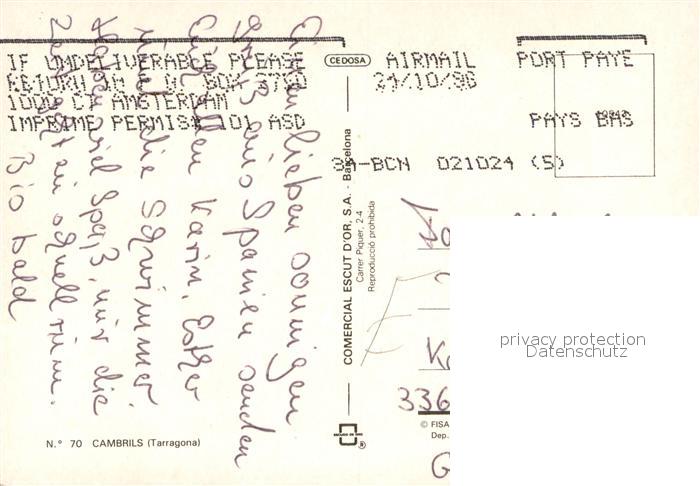 IF UNDELIVERABLE PLEASE
RETURN TO
1000 CA AMSTERDAM
IMPRIME PERMIS 101 ASD
CEDOSA
AIRMAIL
24/10/96
PORT PAYE
PAYS BAS
-BCN 021024 (5)
Einen lieben sonnigen
Gruß aus Spanien senden
Karin, Esther
die Schwimmer.
viel Spaß, nur die
schnell rum.
Bis bald
COMERCIAL ESCUT D'OR, S.A. - Barcelona
Carrer Piquer, 2-4
Reproducció prohibida
336
© FISA
Dep.
G
N.° 70 CAMBRILS (Tarragona)
ESCUDO DE ORO
®
privacy protection
Datenschutz